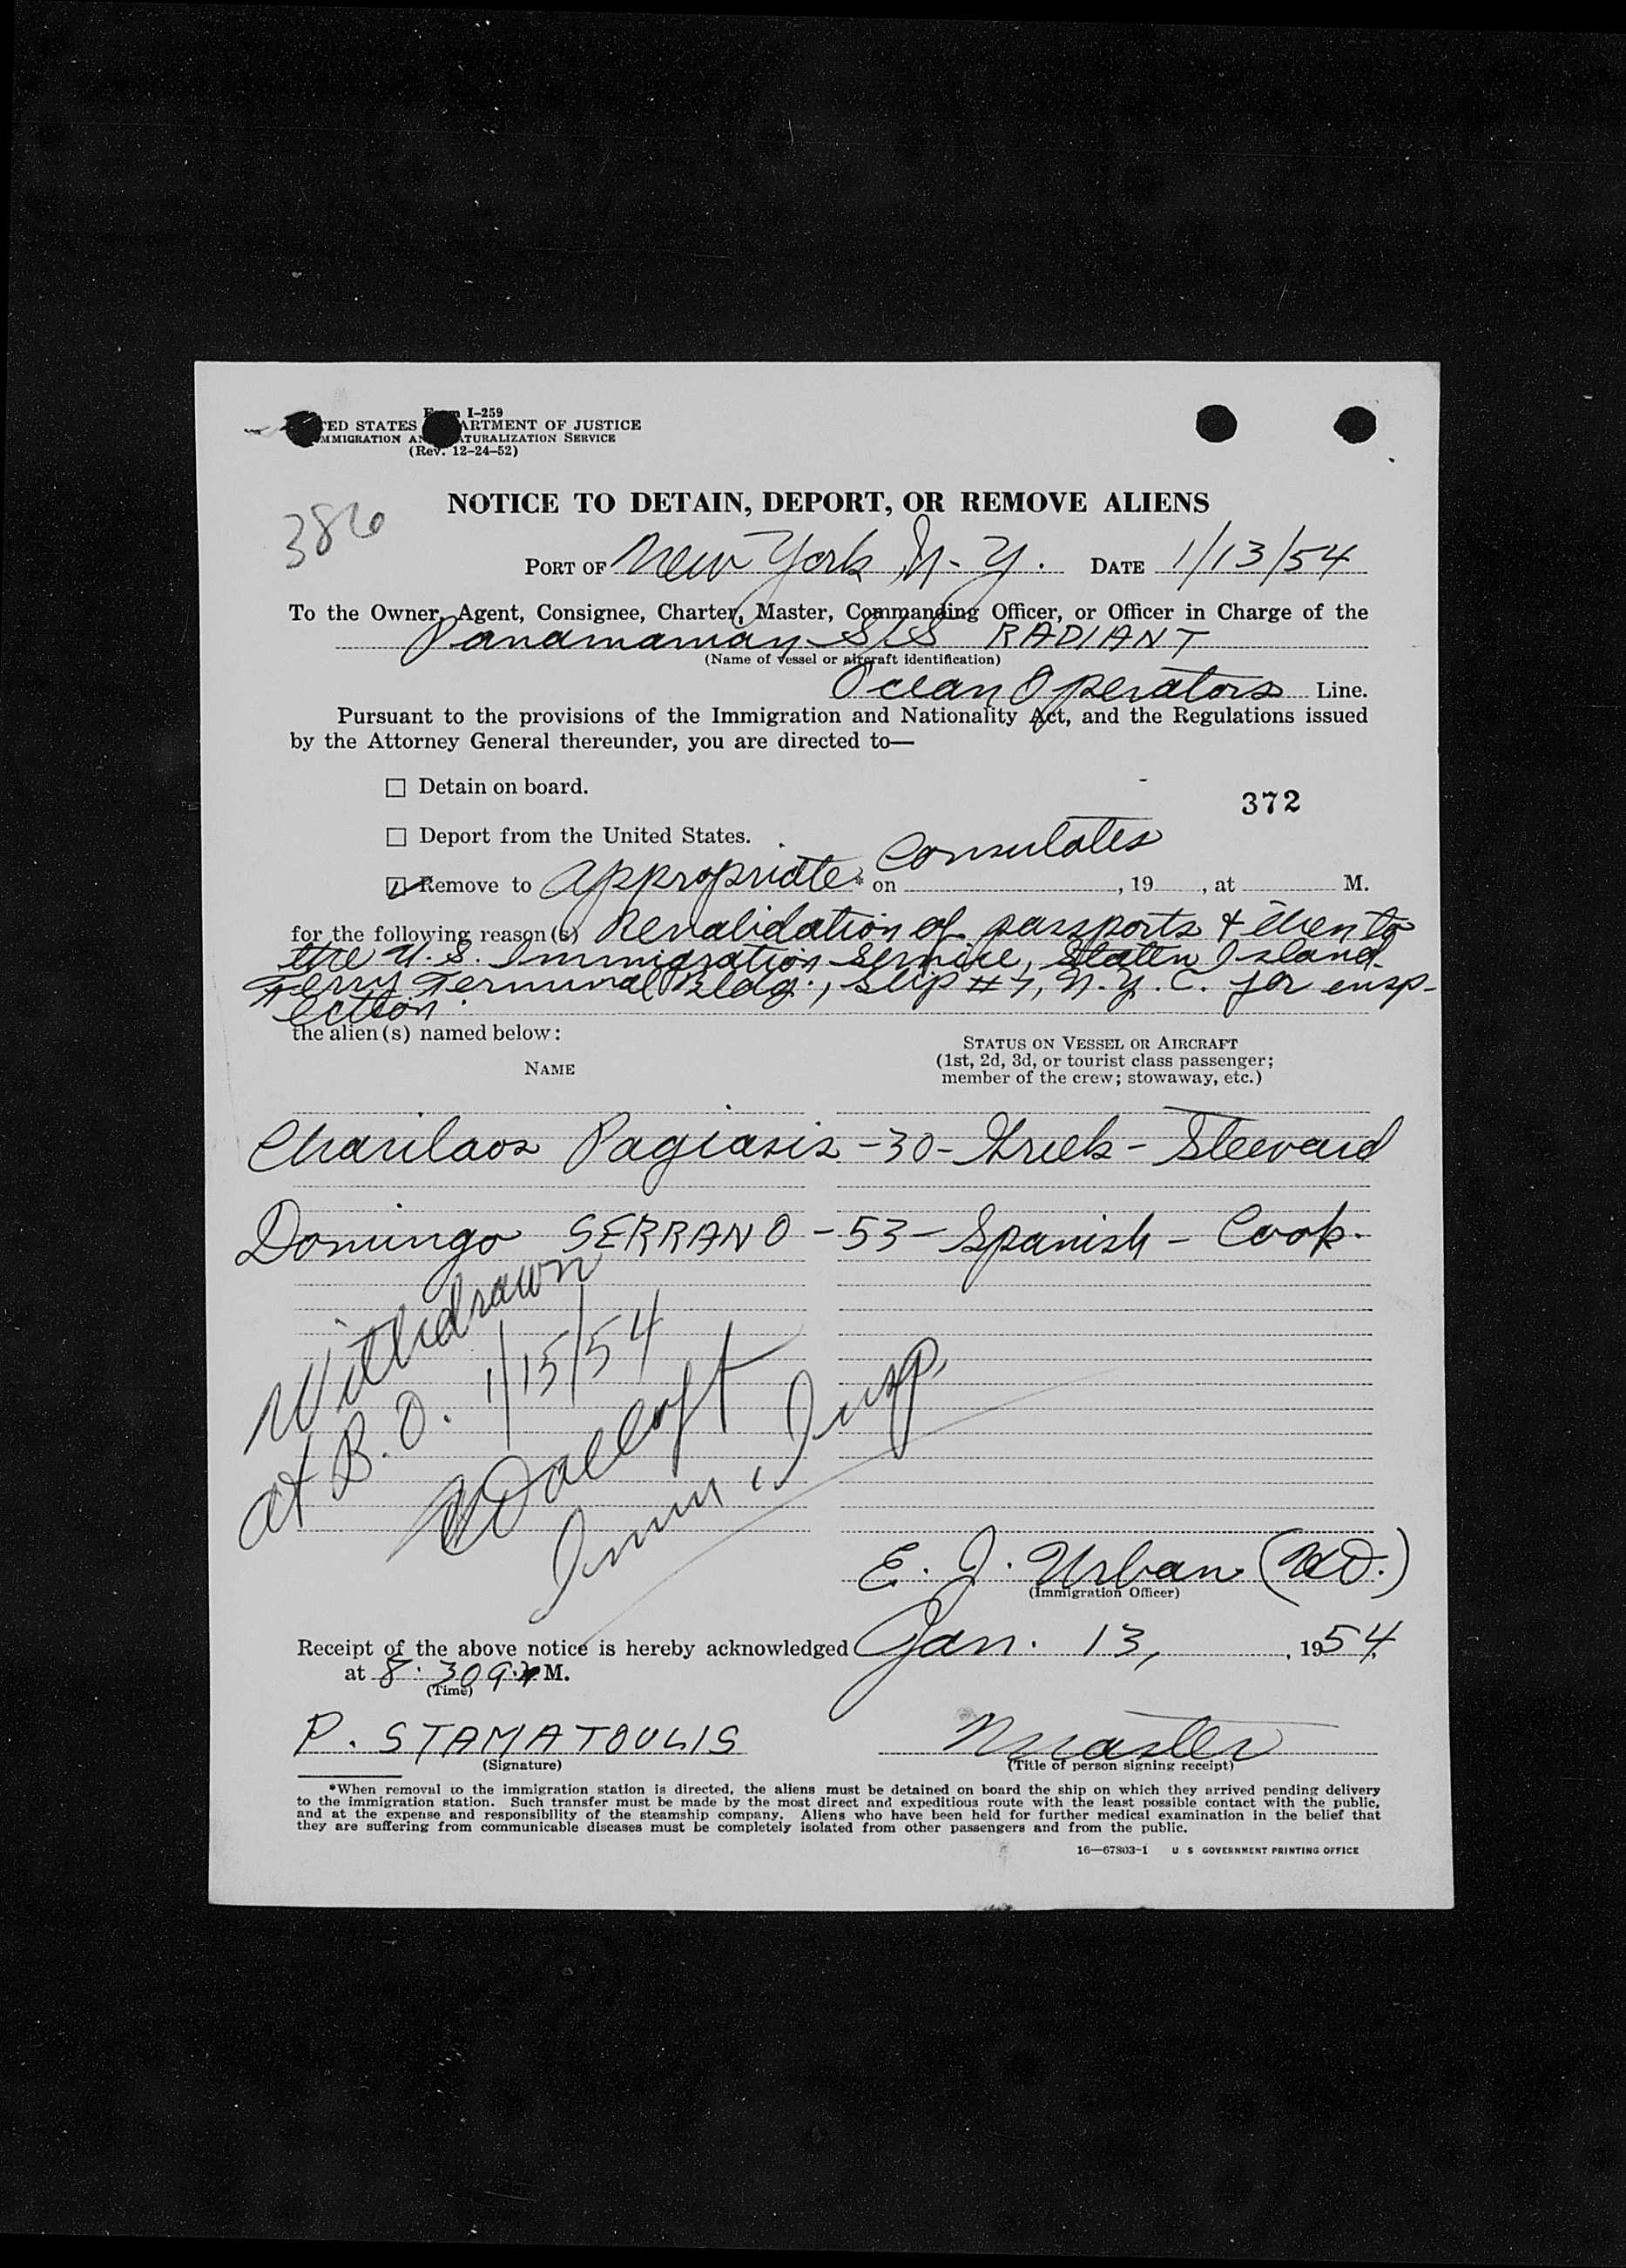 Form I-259
TED STATES ARTMENT OF JUSTICE
MMIGRATION AN ATURALIZATION SERVICE
(Rev. 12-24-52)
NOTICE TO DETAIN, DEPORT, OR REMOVE ALIENS
386
PORT OF New York, N.Y. DATE 1/13/54
To the Owner, Agent, Consignee, Charter, Master, Commanding Officer, or Officer in Charge of the
Panamanian S/S RADIANT
(Name of vessel or aircraft identification)
Ocean Operators Line.
Pursuant to the provisions of the Immigration and Nationality Act, and the Regulations issued
by the Attorney General thereunder, you are directed to—
☐ Detain on board.
372
☐ Deport from the United States.
Consulates
☑ Remove to appropriate * on , 19 , at M.
for the following reason(s) Revalidation of passports & then to
the U.S. Immigration Service, Staten Island
Ferry Terminal Bldg., Slip #7, N.Y.C. for insp-
ection
the alien(s) named below:
NAME
STATUS ON VESSEL OR AIRCRAFT
(1st, 2d, 3d, or tourist class passenger;
member of the crew; stowaway, etc.)
Charilaos Pagiasis - 30 - Greek - Steward
Domingo SERRANO - 53 - Spanish - Cook.
Withdrawn
at B.O. 1/15/54
Imm. Insp.
E. J. Urban
(Immigration Officer)
Receipt of the above notice is hereby acknowledged Jan. 13, , 1954
at 8:30 a. M.
(Time)
P. STAMATOULIS
(Signature)
Master
(Title of person signing receipt)
*When removal to the immigration station is directed, the aliens must be detained on board the ship on which they arrived pending delivery
to the immigration station. Such transfer must be made by the most direct and expeditious route with the least possible contact with the public,
and at the expense and responsibility of the steamship company. Aliens who have been held for further medical examination in the belief that
they are suffering from communicable diseases must be completely isolated from other passengers and from the public.
16—67803-1 U S GOVERNMENT PRINTING OFFICE